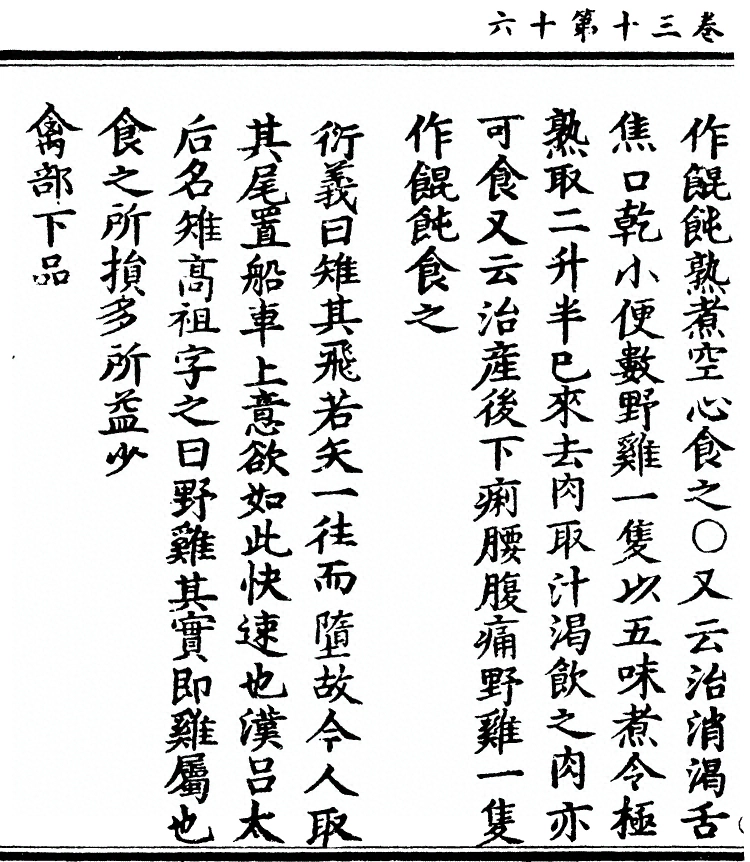 卷三十第十六
作餛飩熟煮空心食之〇又云治消渴舌
焦口乾小便數野雞一隻以五味煮令極
熟取二升半已來去肉取汁渴飲之肉亦
可食又云治産後下痢腰腹痛野雞一隻
作餛飩食之
衍義曰雉其飛若矢一往而墮故今人取
其尾置船車上意欲如此快速也漢吕太
后名雉高祖字之曰野雞其實即雞屬也
食之所損多所益少
禽部下品